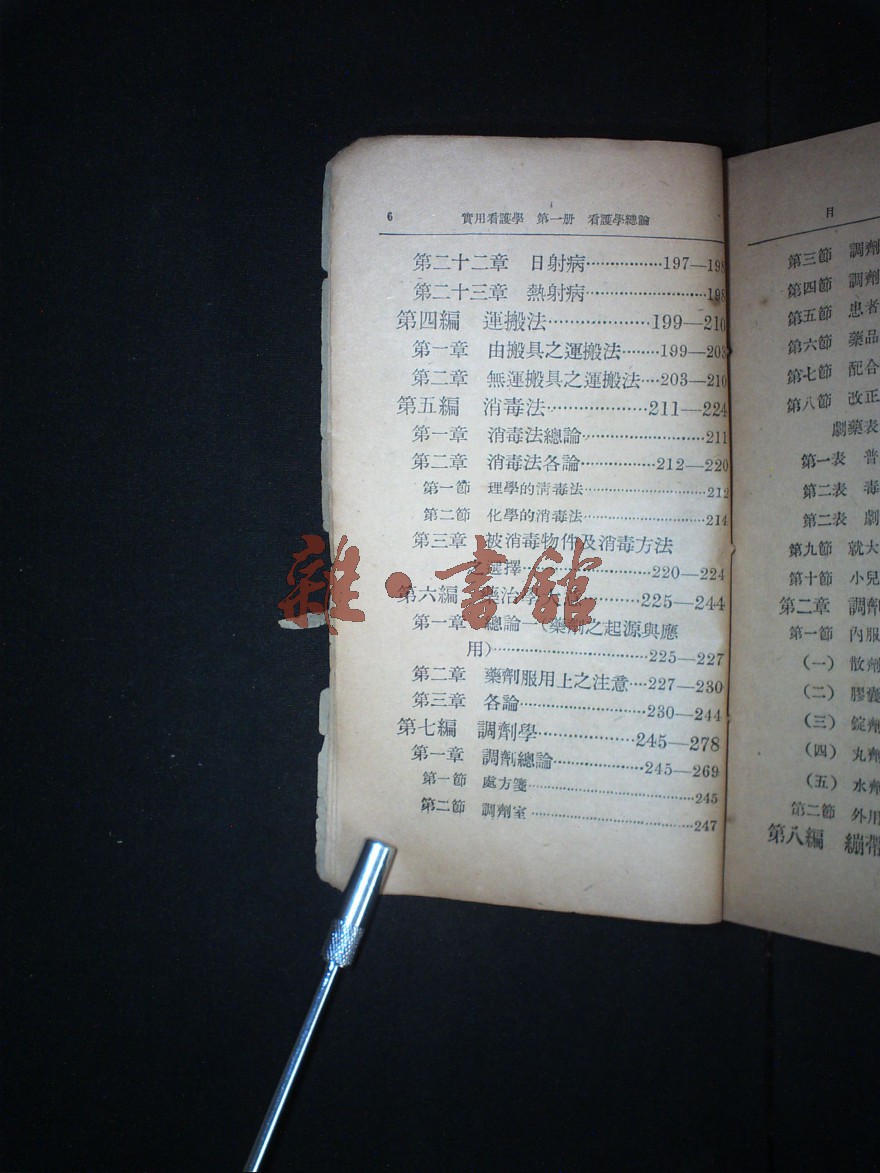 6 實用看護學 第一册 看護學總論
第二十二章 日射病················197—198
第二十三章 熱射病·························198
第四編 運搬法···················199—210
第一章 由搬具之運搬法········199—203
第二章 無運搬具之運搬法····203—210
第五編 消毒法···················211—224
第一章 消毒法總論·······················211
第二章 消毒法各論···············212—220
第一節 理學的淸毒法·······················212
第二節 化學的消毒法·······················214
第三章 被消毒物件及消毒方法
選擇·······················220—224
第六編 藥治學大意·········225—244
第一章 總論—(藥劑之起源與應
用)····························225—227
第二章 藥劑服用上之注意····227—230
第三章 各論·······················230—244
第七編 調劑學··················245—278
第一章 調劑總論················245—269
第一節 處方箋·······························245
第二節 調劑室·······························247
雜·書館
目
第三節 調劑
第四節 調劑
第五節 患者
第六節 藥品
第七節 配合
第八節 改正
劇藥表
第一表 普
第二表 毒
第二表 劇
第九節 就大
第十節 小兒
第二章 調劑
第一節 內服
(一) 散劑
(二) 膠囊
(三) 錠劑
(四) 丸劑
(五) 水劑
第二節 外用
第八編 繃帶